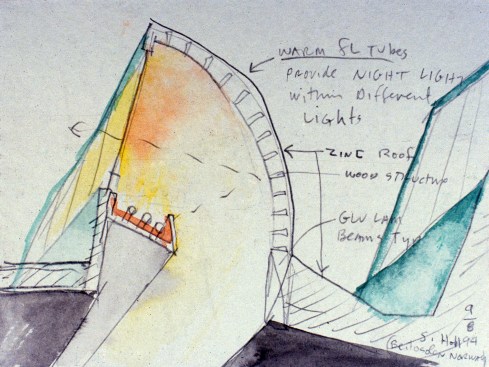 WARM FL TUBES
PROVIDE NIGHT LIGHT
within Different
Lights
ZINC ROOF
WOOD STRUCTUR
GLU LAM
BEAMS TYP
9
8
S. Holl 94
NORWAY